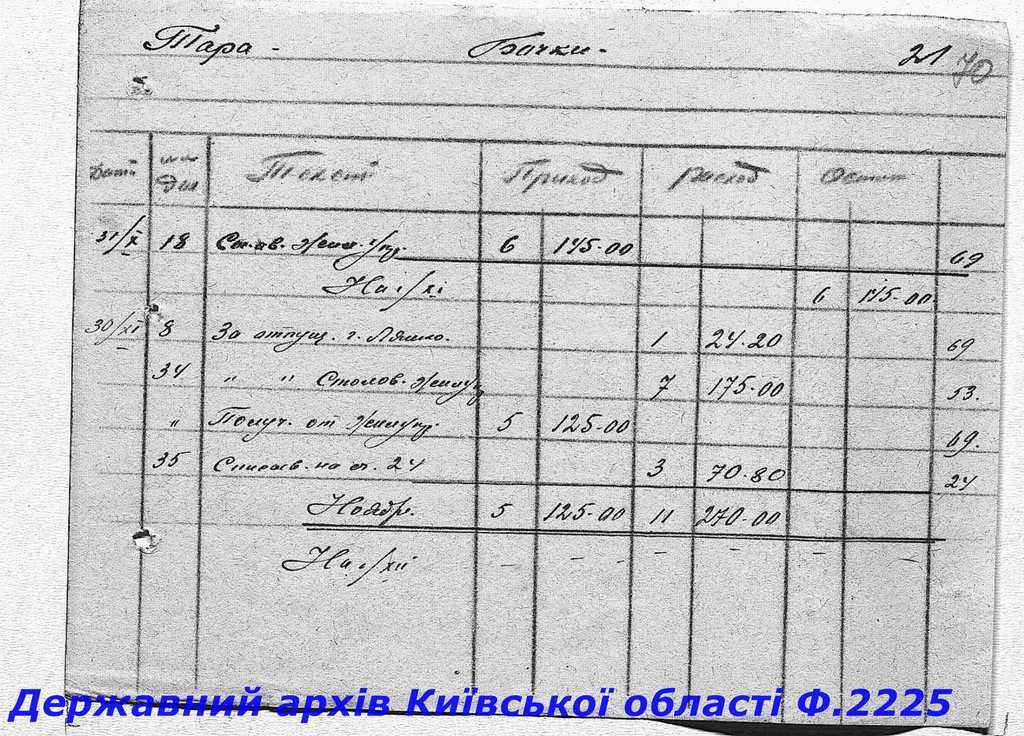 Тара - Бочки. 21 70
Дата Текст Приход Расход Остат
31/X 18 6 145-00 69
На 1/XI 6 145-00
30/XI 8 За отпущ. г. Ляшко. 1 24.20 69
34 " " Столов. 7 175-00 53.
" Получ. от 5 125-00 69.
35 Списыв. на сч. 24 3 70.80 24
Ноябр. 5 125-00 11 270-00
На 1/XII - - - - -
Державний архів Київської області Ф.2225